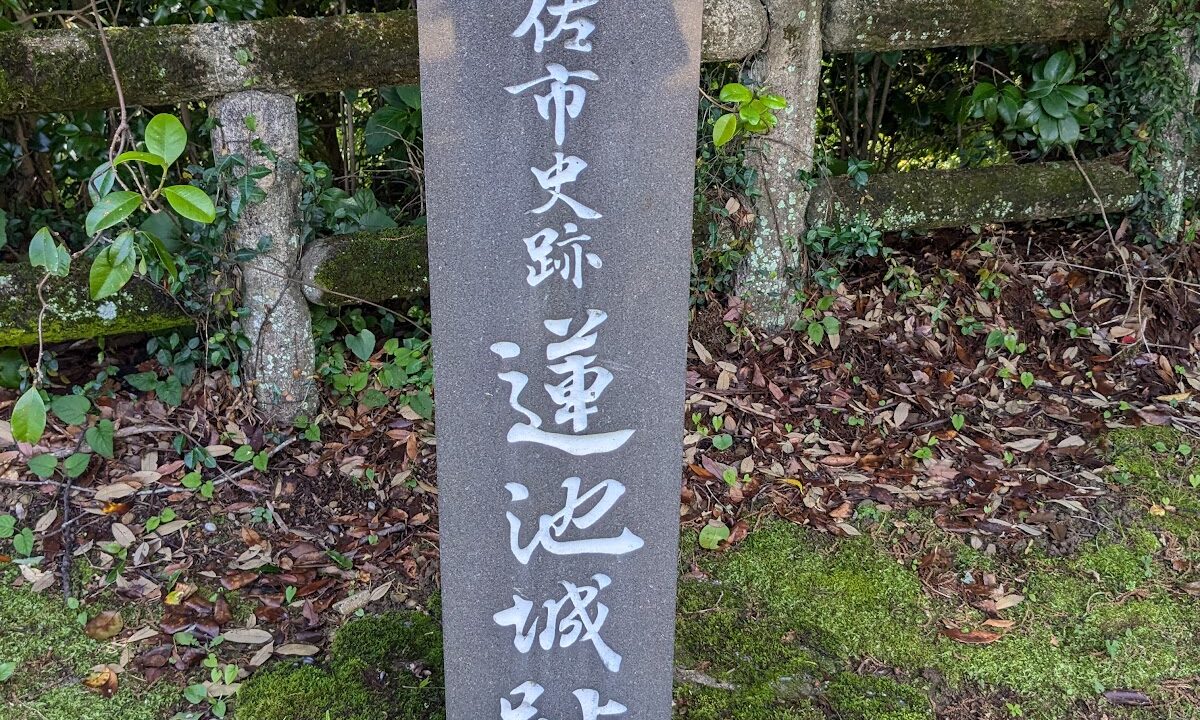 佐市史跡蓮池城跡